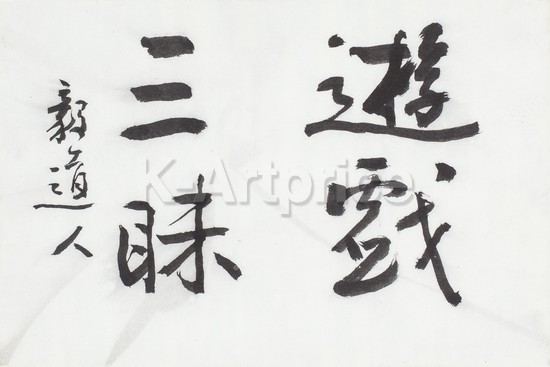 遊戱
三昧
毅道人
K-Artprice